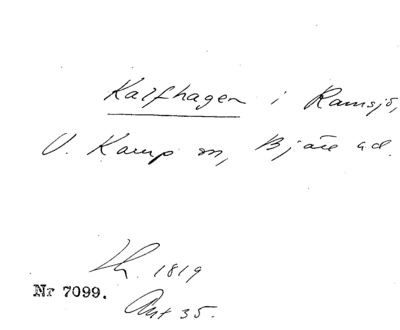 Kalfhagen i Ramsjö,
V. Karup sn, Bjäre hd.
1819
Nr 7099.
Akt 35.